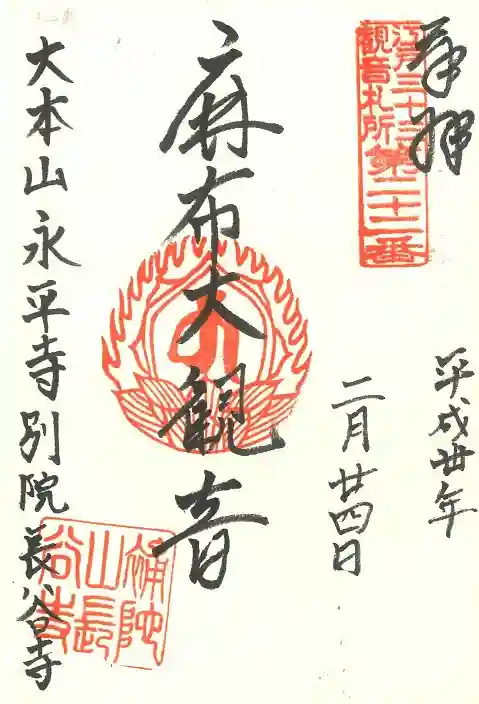 奉拝
江戸三十三
観音札所第二十二番
平成廿年
二月廿四日
麻布大観音
大本山永平寺別院長谷寺
補陀
山長
谷寺